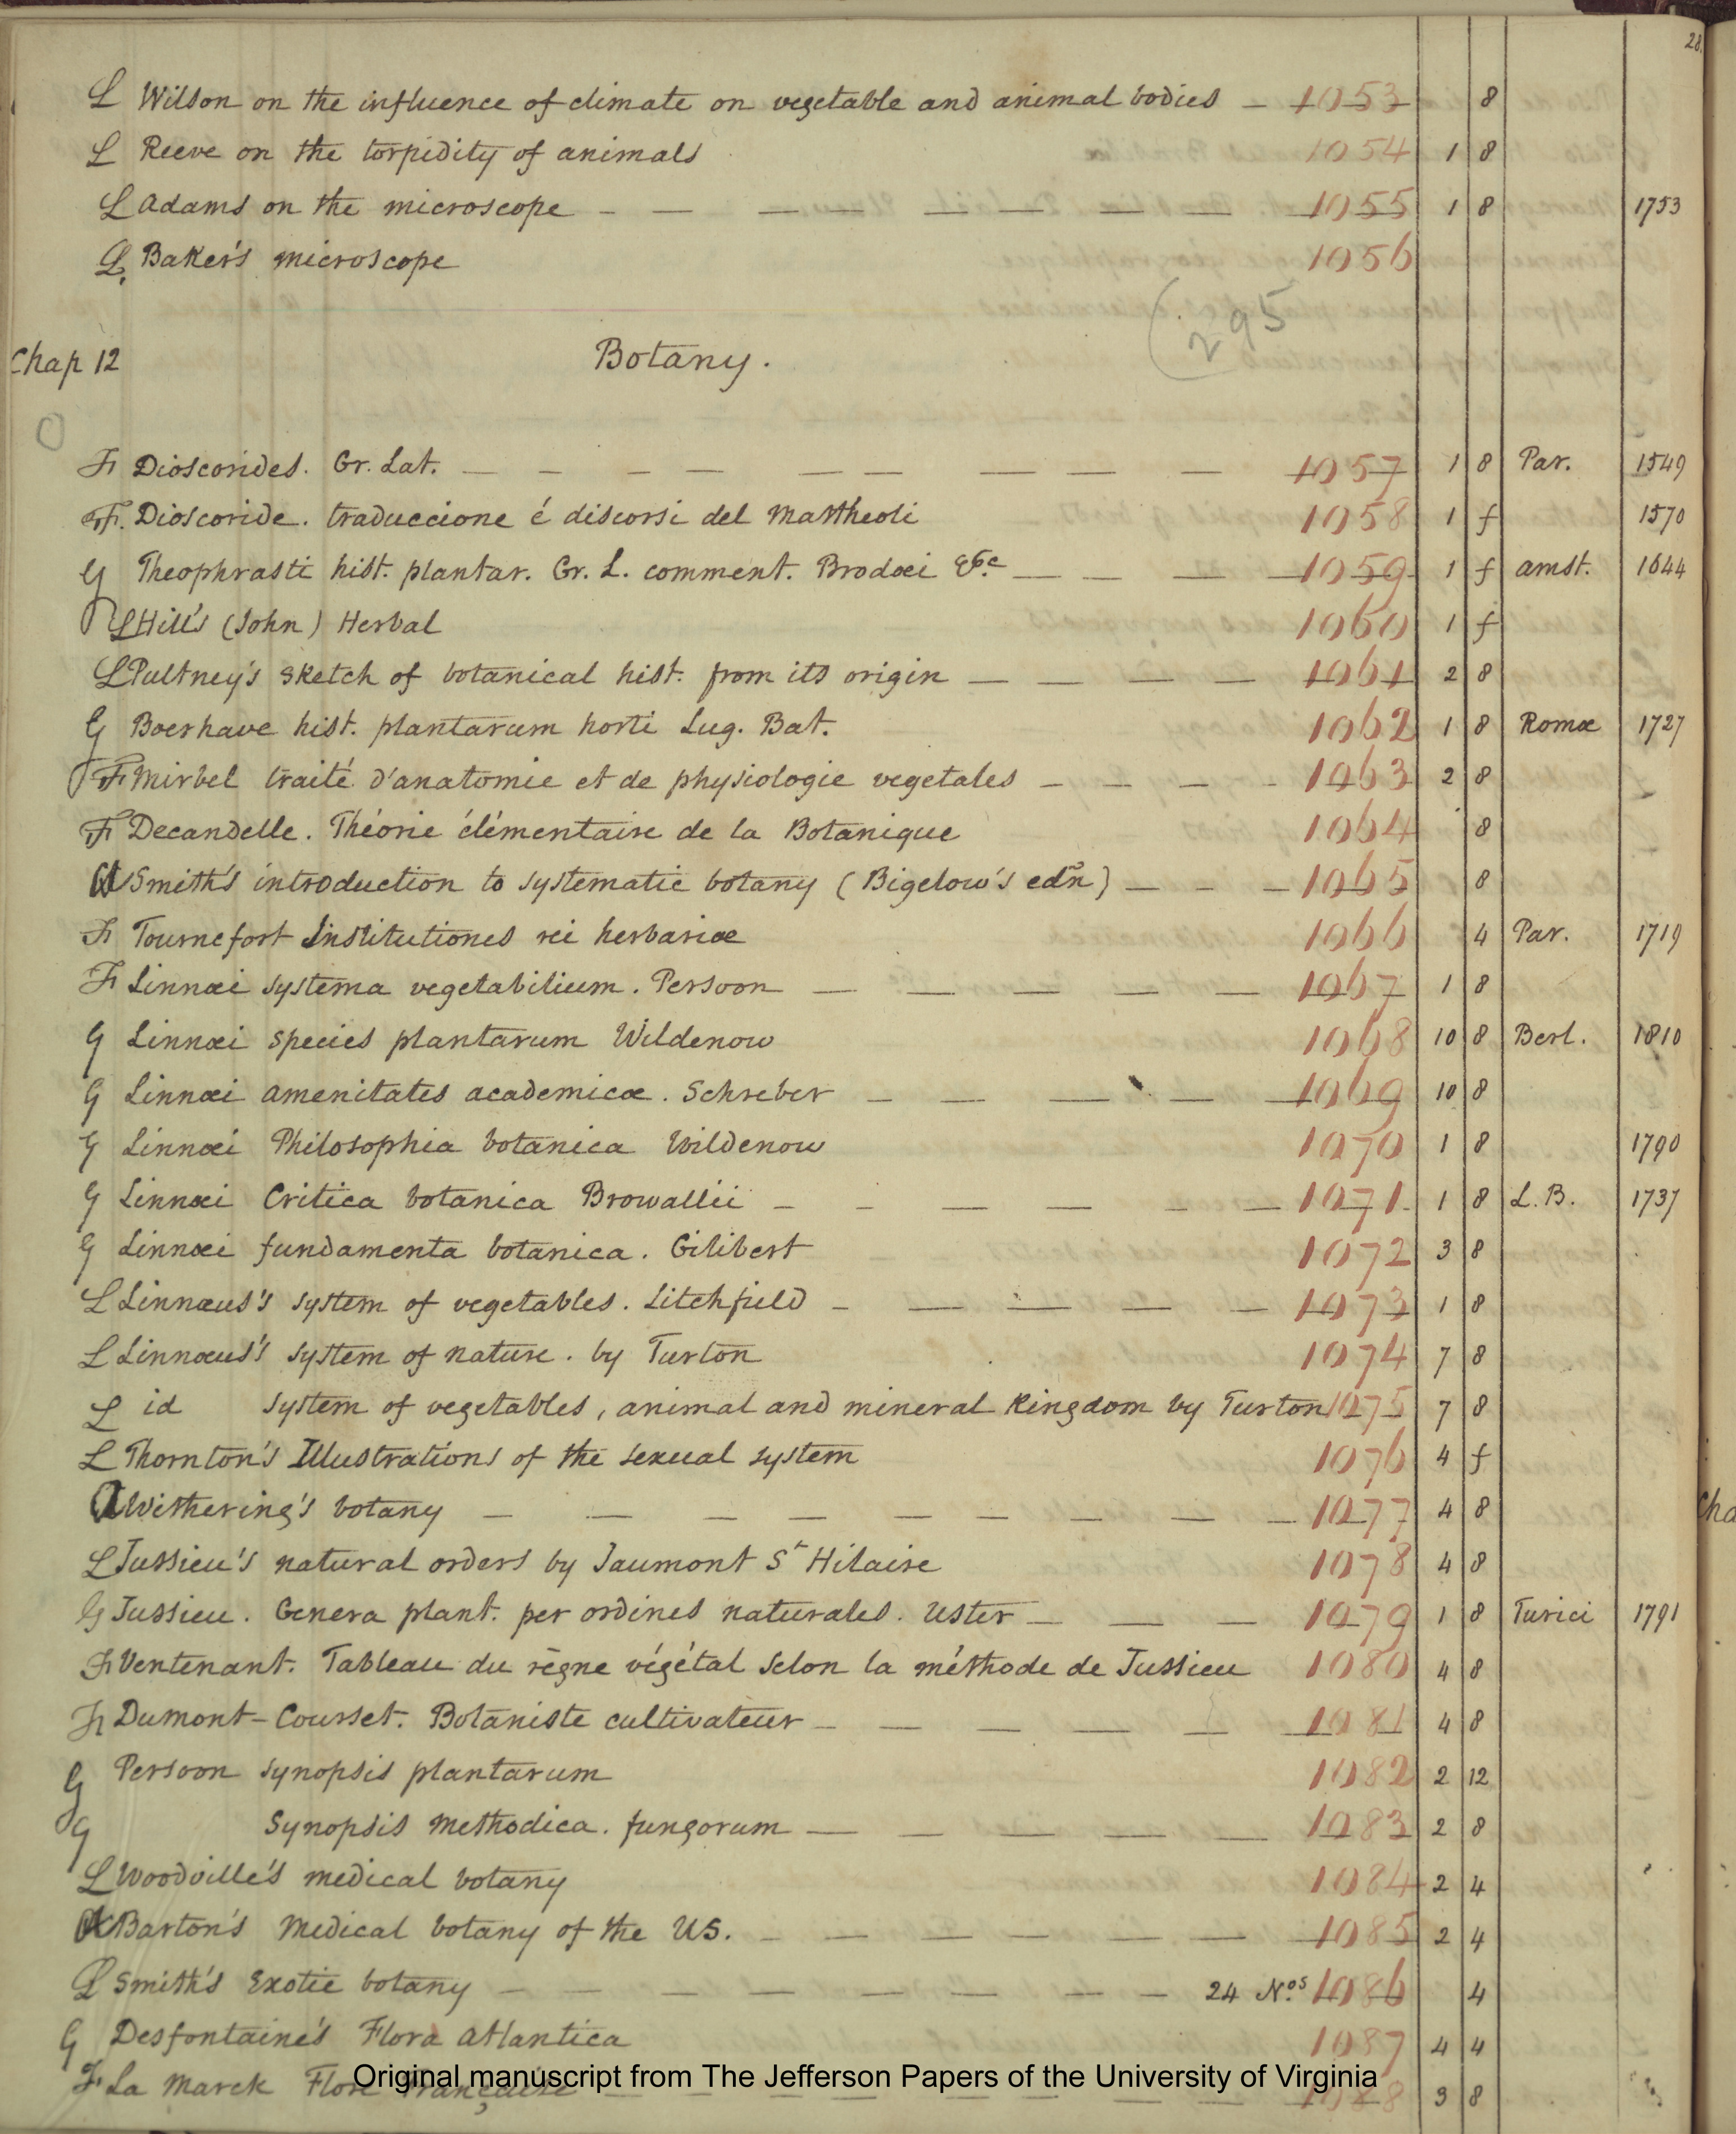 28.
L Wilson on the influence of climate on vegetable and animal bodies — 1053 8
L Reeve on the torpidity of animals 1054 1 8
L Adams on the microscope — — — — — — — — 1055 1 8 1753
L Baker's microscope 1056
(295
Chap 12 Botany.
F Dioscorides. Gr. Lat. — — — — — — — — — 1057 1 8 Par. 1549
F. Dioscoride. traduccione é discorsi del Mattheoli 1058 1 f 1570
G Theophrasti hist. plantar. Gr. L. comment. Brodæi &c — — — 1059 1 f Amst. 1644
L Hill's (John) Herbal 1060 1 f
L Pultney's sketch of botanical hist. from its origin — — — — 1061 2 8
G Boerhave hist. plantarum horti Lug. Bat. 1062 1 8 Romæ 1727
F Mirbel traité d'anatomie et de physiologie vegetales — — — - 1063 2 8
F Decandelle. Théorie élémentaire de la Botanique 1064 8
A Smith's introduction to systematic botany (Bigelow's edn) — - — 1065 8
F Tournefort Institutiones rei herbariæ 1066 4 Par. 1719
F Linnæi systema vegetabilium. Persoon — — — — — 1067 1 8
G Linnæi species plantarum Wildenow 1068 10 8 Berl. 1810
G Linnæi amenitates academicæ. Schreber — — — — — 1069 10 8
G Linnæi Philosophia botanica Wildenow 1070 1 8 1790
G Linnæi Critica botanica Browallii — - — — — — 1071 1 8 L.B. 1737
G Linnæi fundamenta botanica. Gilibert 1072 3 8
L Linnæus's system of vegetables. Litchfield — — — — — 1073 1 8
L Linnæus's system of nature. by Turton 1074 7 8
L id system of vegetables, animal and mineral kingdom by Turton 1075 7 8
L Thornton's Illustrations of the sexual system 1076 4 f
A Withering's botany — — — — — — — — — 1077 4 8
Cha
L Jussieu's natural orders by Jaumont St Hilaire 1078 4 8
G Jussieu. Genera plant. per ordines naturales. Uster — — — 1079 1 8 Turici 1791
F Ventenant. Tableau du règne végétal selon la méthode de Jussieu 1080 4 8
F Dumont-Courset. Botaniste cultivateur — — — — — 1081 4 8
G Persoon synopsis plantarum 1082 2 12
G Synopsis methodica. fungorum — — — — — 1083 2 8
L Woodville's medical botany 1084 2 4
A Barton's Medical botany of the US. — — — — — — 1085 2 4
L Smith's Exotic botany — — — — — — — — 24 Nos 1086 4
G Desfontaine's Flora Atlantica 1087 4 4
F La Marck Flore Française — — — — — — 1088 3 8
Original manuscript from The Jefferson Papers of the University of Virginia